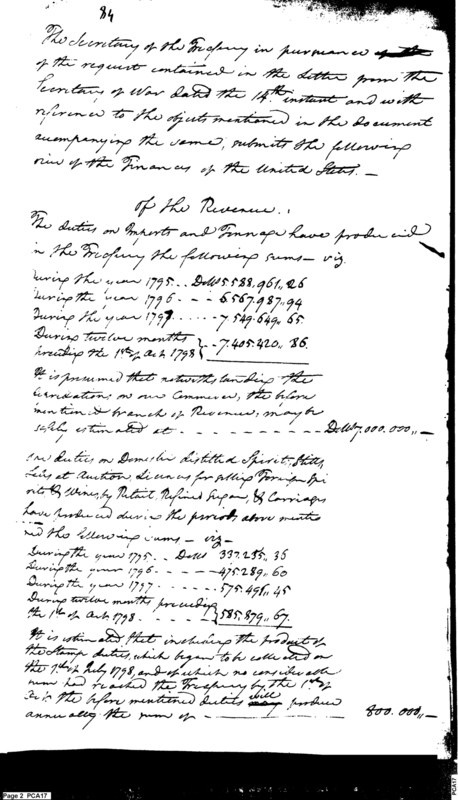 84
The Secretary of the Treasury in pursuance of the
of the request contained in the Letter from the
Secretary of War dated the 14th instant and with
reference to the objects mentioned in the document
accompanying the same, submits the following
view of the Finances of the United States. —
Of the Revenue.
The Duties on Imports and Tonnage have produced
in the Treasury the following sums — viz
During the year 1795 .. Dolls 5.588.961,, 26
During the year 1796 - - - - 6.567.987,, 94
During the year 1797 - - - - - 7.549.649,, 65
During twelve months
preceding the 1st of Oct. 1798 } - - 7.405.420,, 86
It is presumed that notwithstanding the
on our Commerce, the before
mentioned branch of Revenue, may be
safely estimated at — Dolls 7,000.000,, —
The duties on Domestic distilled Spirits, Stills,
Sales at Auction, Licences for selling Foreign Spi
rits & Wines, by Retail, Refined Sugar, & Carriages
have produced during the periods above mentio
ned the following sums — viz —
During the year 1795 .. Dolls 337.255,, 36
During the year 1796 - - - - - 475.289,, 60
During the year 1797 - - - - - - 575.491,, 45
During twelve months preceding
the 1st of Oct. 1798 - - - - - - } 585.879,, 67
It is estimated that including the product of
the Stamp duties, which began to be collected on
the 1st of July 1798, and of which no considerable
sum had reached the Treasury by the 1st of
the before mentioned duties will produce
annually the sum of — 800.000,, —
Page 2 PCA17
PCA17